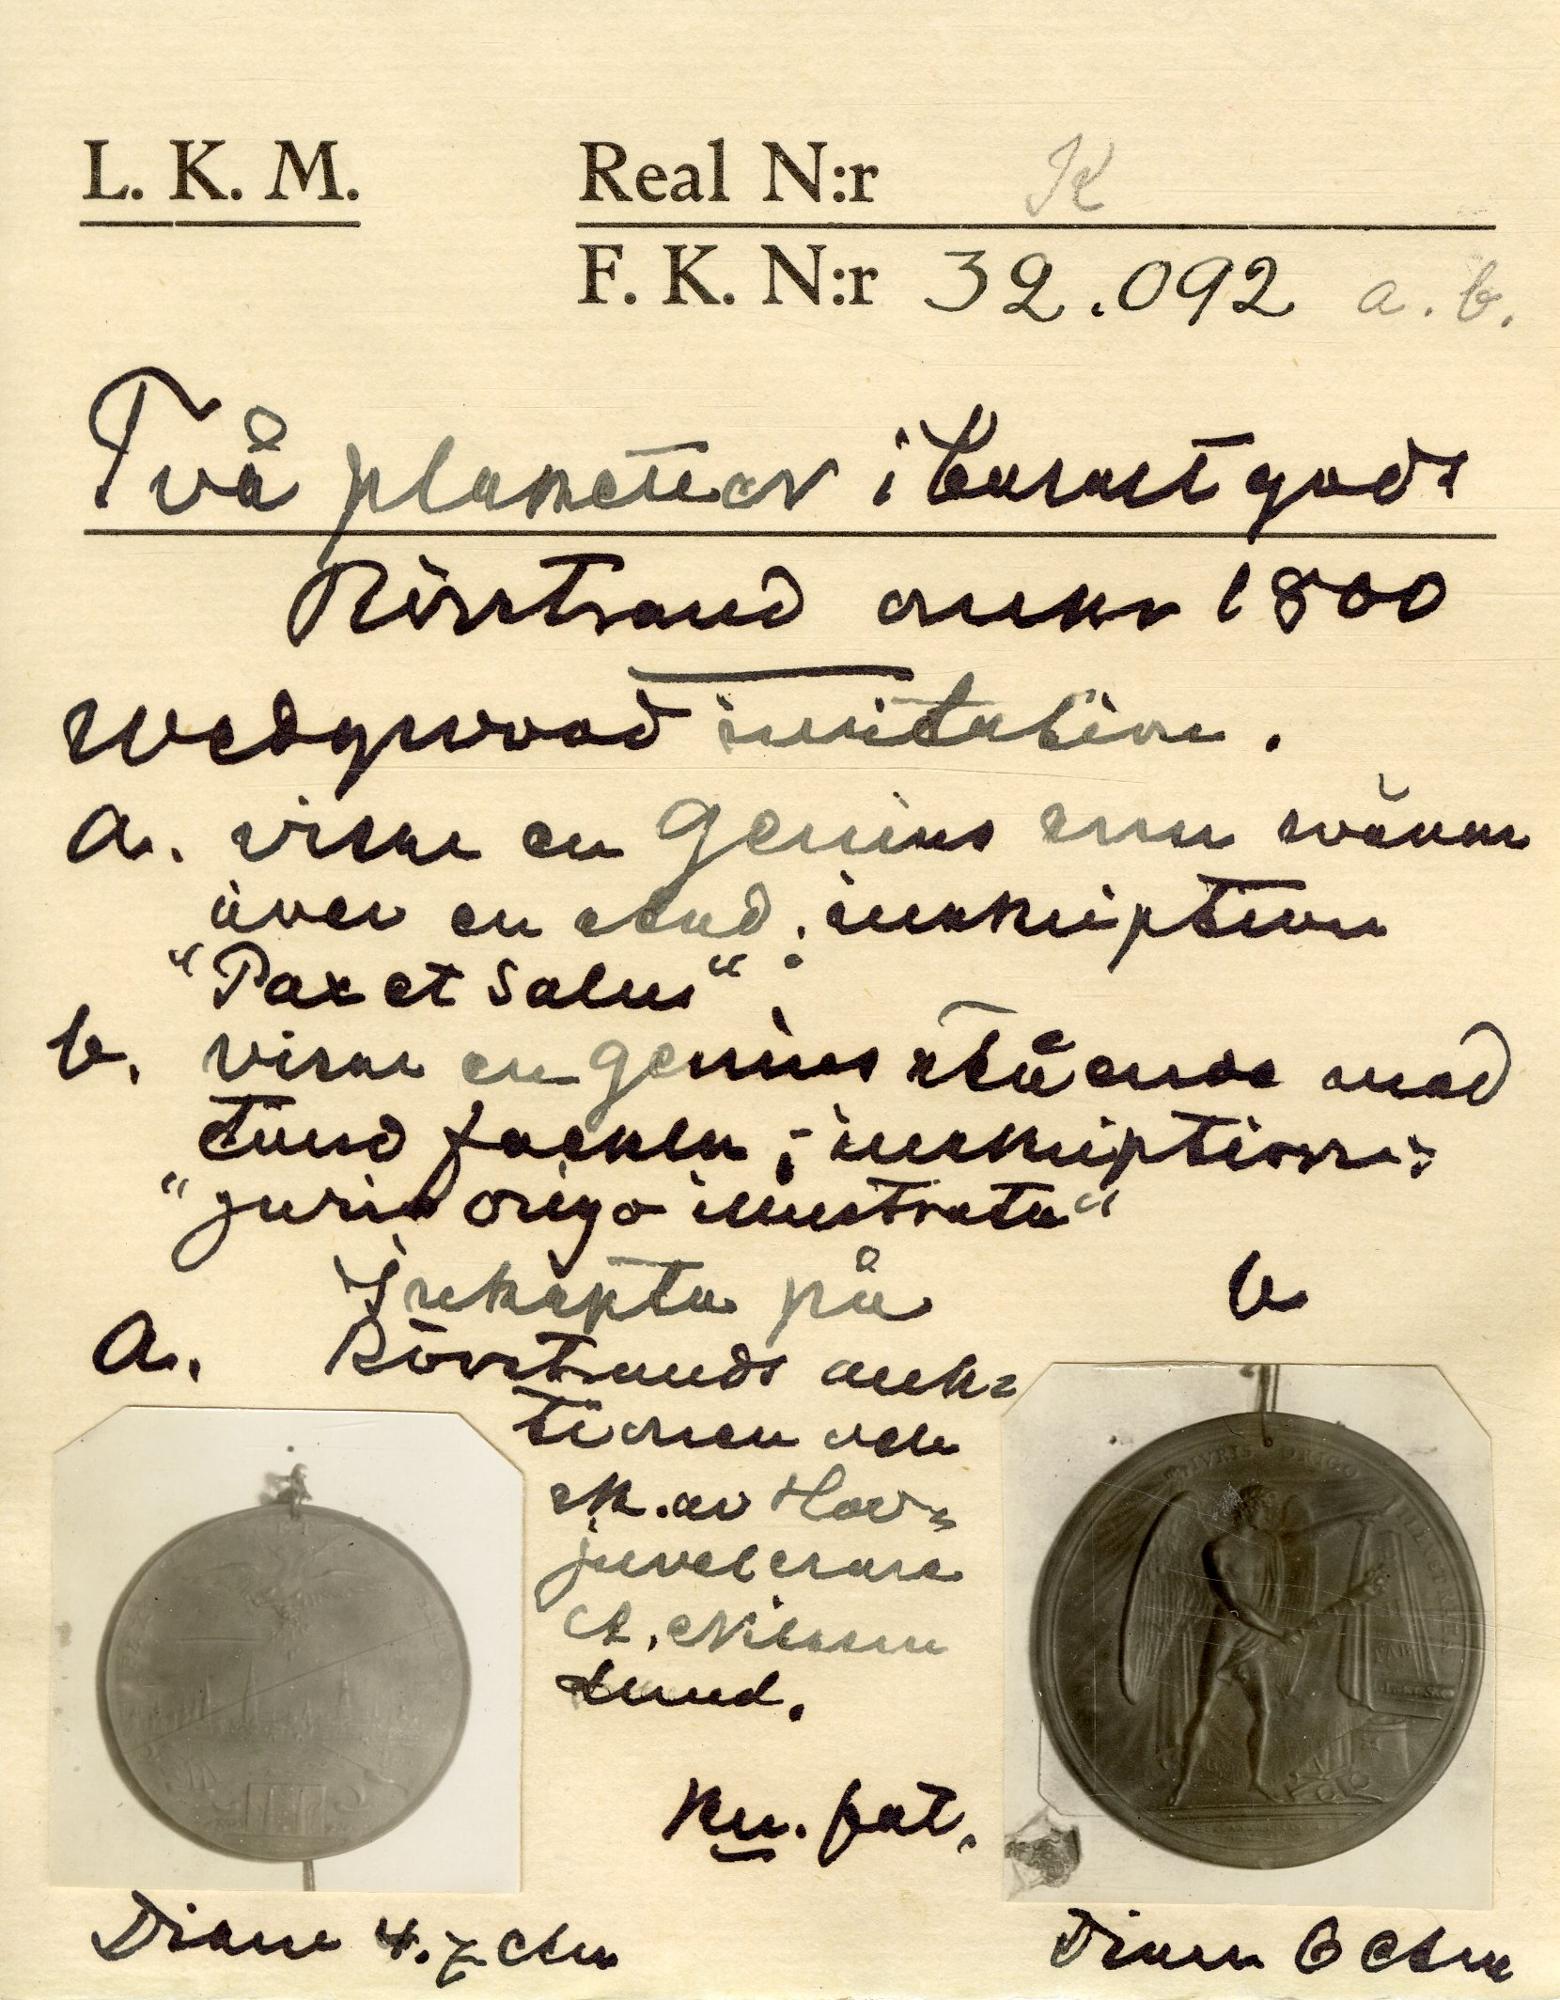 L. K. M.
Real N:r K
F. K. N:r 32.092 a. b.
Två plaketter i basaltgods
Rörstrand omkr 1800
Wedgwood imitation.
a. visar en Genius som svävar
över en stad; inskription
"Pax et Salus".
b. visar en genius stående med
tänd fackla; inskription:
"juris origo illustrata"
Inköpta på
Rörstrands auk=
tionen och
sk. av Hov=
juvelerare
A. Nilsson
Lund.
a.
b
Ku. fat.
Diam 4.7 ctm
Diam 6 ctm
IURIS ORIGO